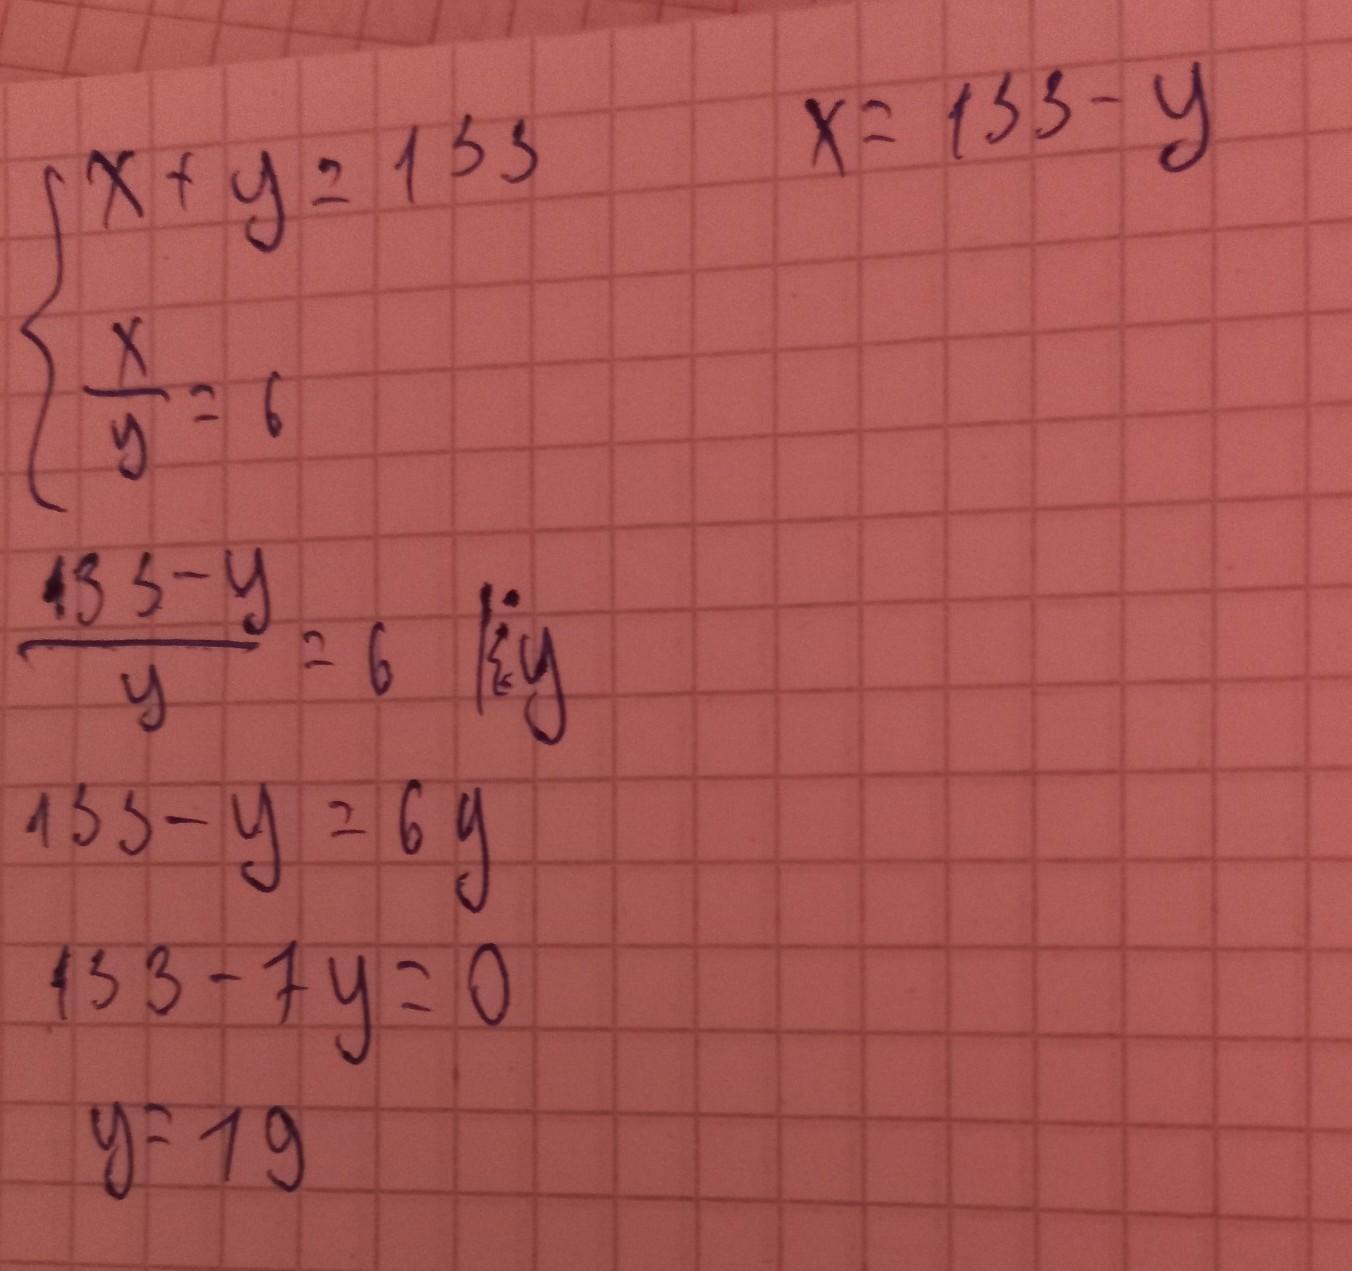 x + y = 133
x = 133 - y
x/y = 6
(133 - y)/y = 6 | · y
133 - y = 6y
133 - 7y = 0
y = 19